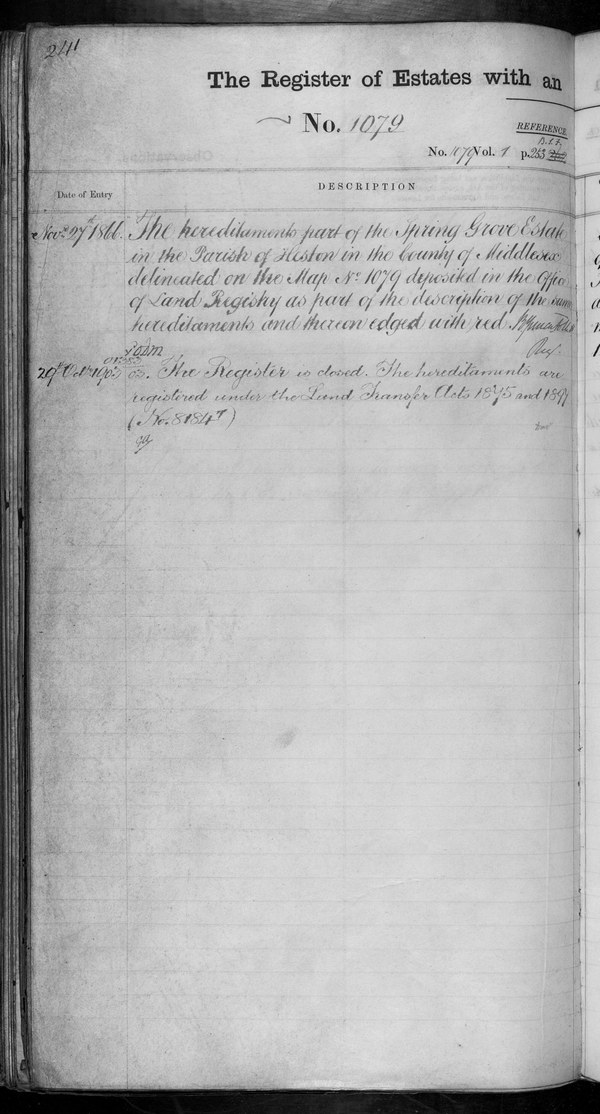 241
The Register of Estates with an
No. 1079
REFERENCE.
No. 1079 Vol. 1 p. 253
Date of Entry
DESCRIPTION
Nov. 27th 1866. The hereditaments part of the Spring Grove Estate
in the Parish of Heston in the County of Middlesex
delineated on the Map No. 1079 deposited in the Office
of Land Registry as part of the description of the same
hereditaments and thereon edged with red.
Reg.
29th Octr. 1903. The Register is closed. The hereditaments are
registered under the Land Transfer Acts 1875 and 1897
(No. 81847)